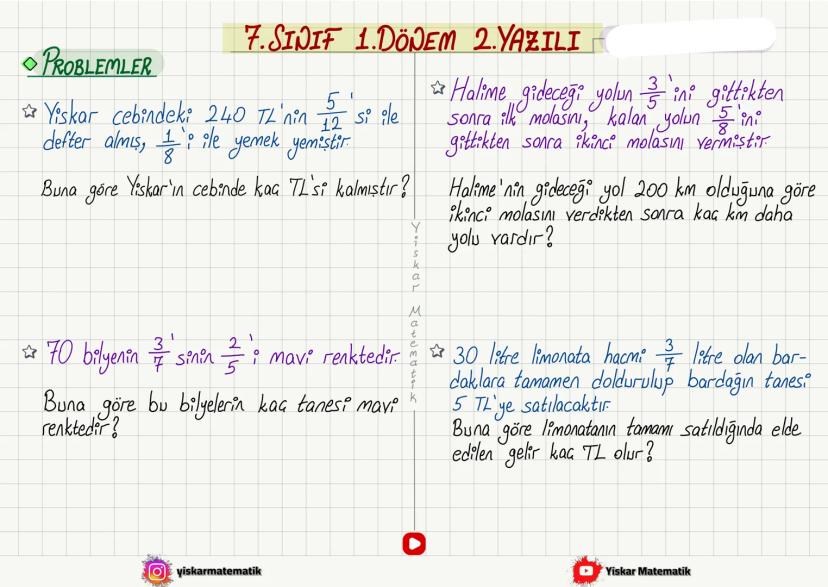 7. SINIF 1. DÖNEM 2. YAZILI
PROBLEMLER
Yiskar cebindeki 240 TL'nin 5/12'si ile
defter almış, 1/8'i ile yemek yemiştir.
Buna göre Yiskar'ın cebinde kaç TL'si kalmıştır?
Halime gideceği yolun 3/5'ini gittikten
sonra ilk molasını, kalan yolun 5/8'ini
gittikten sonra ikinci molasını vermiştir.
Halime'nin gideceği yol 200 km olduğuna göre
ikinci molasını verdikten sonra kaç km daha
yolu vardır?
Yiskar Matematik
70 bilyenin 3/7'sinin 2/5'i mavi renktedir.
Buna göre bu bilyelerin kaç tanesi mavi
renktedir?
30 litre limonata hacmi 3/7 litre olan bar-
daklara tamamen doldurulup bardağın tanesi
5 TL'ye satılacaktır.
Buna göre limonatanın tamamı satıldığında elde
edilen gelir kaç TL olur?
yiskarmatematik
Yiskar Matematik